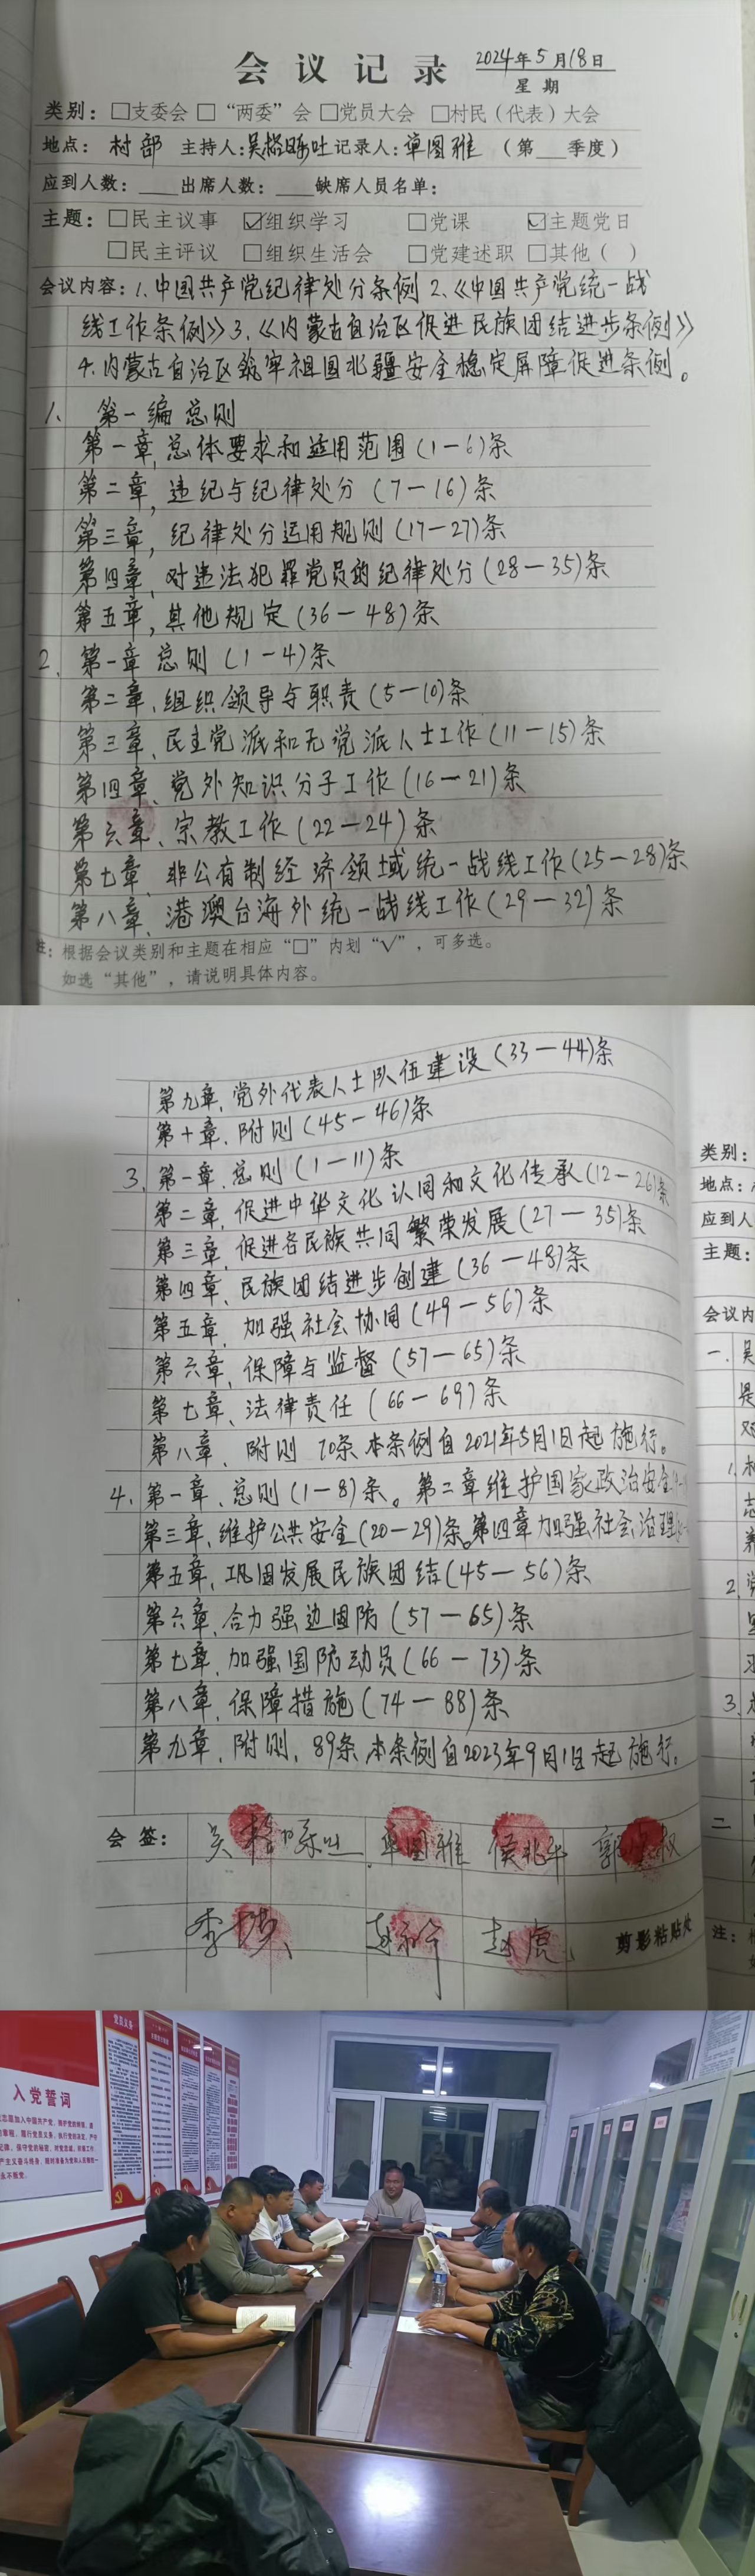 会议记录 2024年5月18日
星期
类别：□支委会 □“两委”会 □党员大会 □村民（代表）大会
地点：村部 主持人：吴格日乐吐 记录人：卓图雅 （第 季度）
应到人数： 出席人数： 缺席人员名单：
主题：□民主议事 ☑组织学习 □党课 ☑主题党日
□民主评议 □组织生活会 □党建述职 □其他（ ）
会议内容：1.中国共产党纪律处分条例 2.《中国共产党统一战
线工作条例》3.《内蒙古自治区促进民族团结进步条例》
4.内蒙古自治区筑牢祖国北疆安全稳定屏障促进条例。
1、第一编 总则
第一章，总体要求和适用范围（1－6）条
第二章，违纪与纪律处分（7－16）条
第三章，纪律处分运用规则（17－27）条
第四章、对违法犯罪党员的纪律处分（28－35）条
第五章，其他规定（36－48）条
2、第一章 总则（1－4）条
第二章、组织领导与职责（5－10）条
第三章、民主党派和无党派人士工作（11－15）条
第四章、党外知识分子工作（16－21）条
第六章、宗教工作（22－24）条
第七章、非公有制经济领域统一战线工作（25－28）条
第八章、港澳台海外统一战线工作（29－32）条
注：根据会议类别和主题在相应“□”内划“√”，可多选。
如选“其他”，请说明具体内容。
第九章、党外代表人士队伍建设（33－44）条
第十章、附则（45－46）条
3、第一章、总则（1－11）条
第二章、促进中华文化认同和文化传承（12－26）条
第三章、促进各民族共同繁荣发展（27－35）条
第四章、民族团结进步创建（36－48）条
第五章、加强社会协同（49－56）条
第六章、保障与监督（57－65）条
第七章、法律责任（66－69）条
第八章、附则 70条 本条例自2021年5月1日起施行。
4、第一章、总则（1－8）条。第二章维护国家政治安全
第三章、维护公共安全（20－29）条。第四章加强社会治理
第五章、巩固发展民族团结（45－56）条
第六章、合力强边固防（57－65）条
第七章、加强国防动员（66－73）条
第八章、保障措施（74－88）条
第九章、附则，89条 本条例自2023年9月1日起施行。
会签：吴格日乐吐 卓图雅 侯兆华
赵虎
剪影粘贴处
类别：
地点：
应到人
主题：
会议内
一、吴
是
1、
2、
3、
二
注：
入党誓词
党员义务